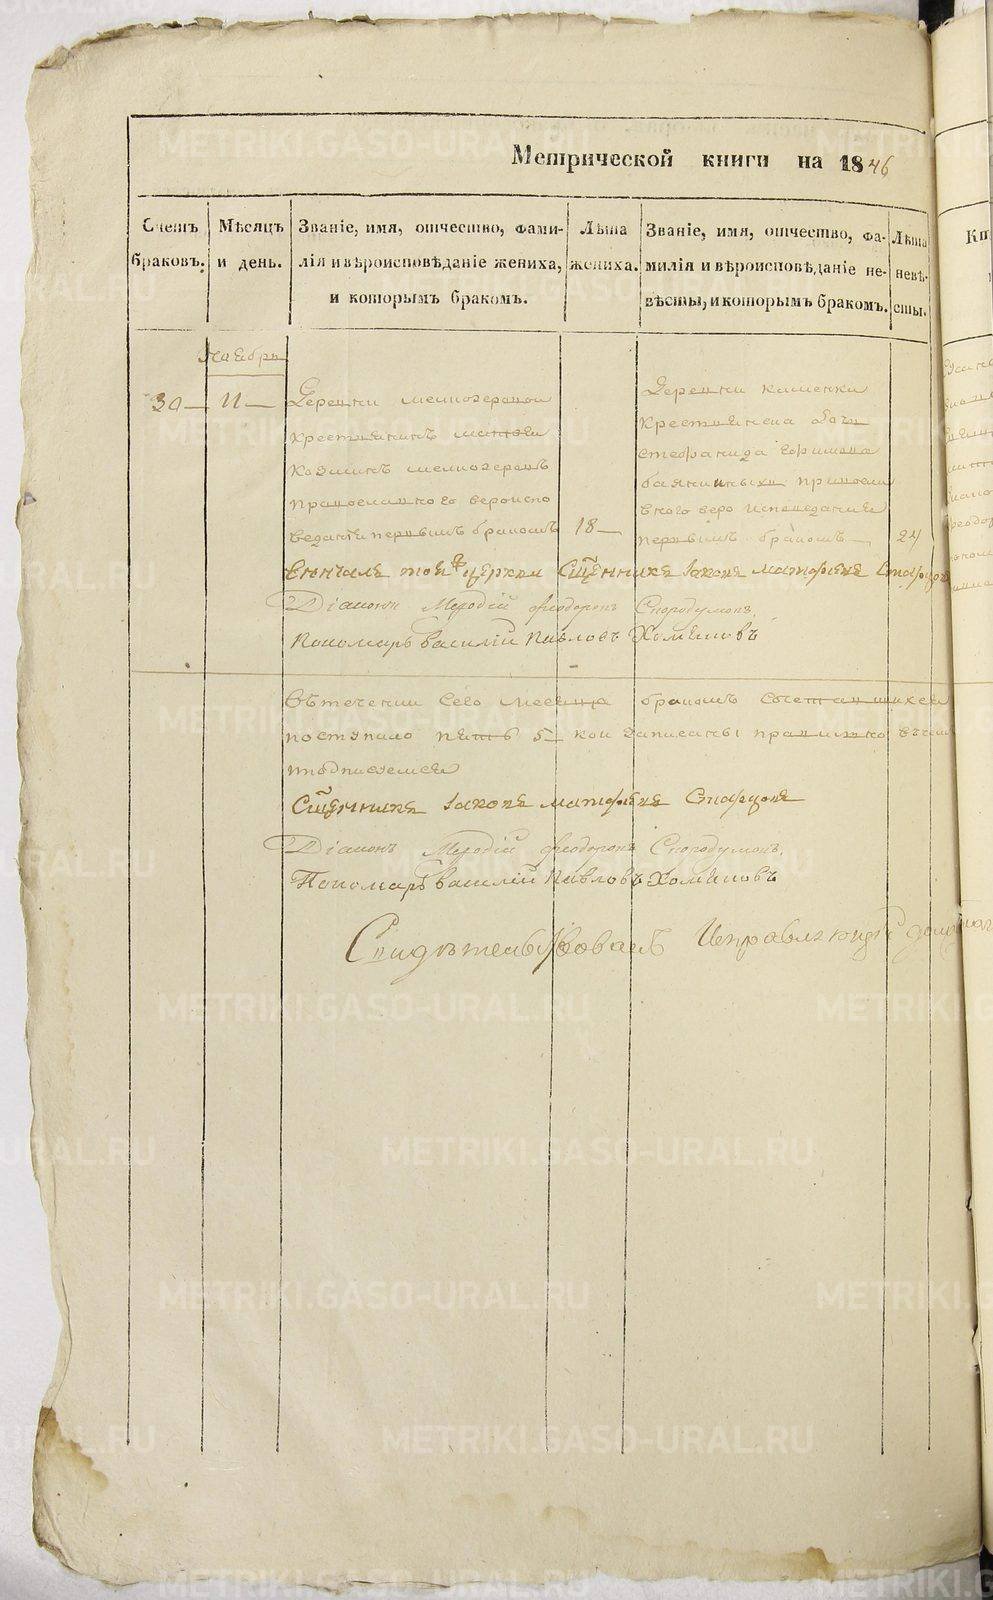 Метрической книги на 1846
Счетъ браковъ.
Мѣсяцъ и день.
Званіе, имя, отчество, фами-
лія и вѣроисповѣданіе жениха,
и которымъ бракомъ.
Лѣта
жениха.
Званіе, имя, отчество, фа-
милія и вѣроисповѣданіе не-
вѣсты, и которымъ бракомъ.
Лѣта
невѣ-
сты.
Ноябрь
30 11
Деревни
крестьянинъ матвей
козминъ
православного вероиспо
ведания первымъ бракомъ 18
Деревни каменки
крестьянска дочь
стефанида ефимова
православ
ного вероисповедания
первымъ бракомъ 24
Венчалъ той церкви Сщенникъ Іаковъ матфѣевъ Старцовъ
Діаконъ Меѳодій феодоровъ Скородумовъ.
Пономарь Василій Павловъ Хомяковъ
Въ течении сего месеца бракомъ
поступило пять 5 кои записаны правильно въ чем
и подписуемся
Сщенникъ Іаковъ матфѣевъ Старцовъ
Діаконъ Меѳодій феодоровъ Скородумовъ.
Пономарь Василій Павловъ Хомяковъ
Свидѣтельствовалъ Исправляющій
METRIKI.GASO-URAL.RU